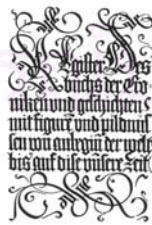 Register Des
buchs der Cro
niken und geschichten
mit figuren und pildnus
sen von anbeginn der welt
bis auf dise unsere Zeit